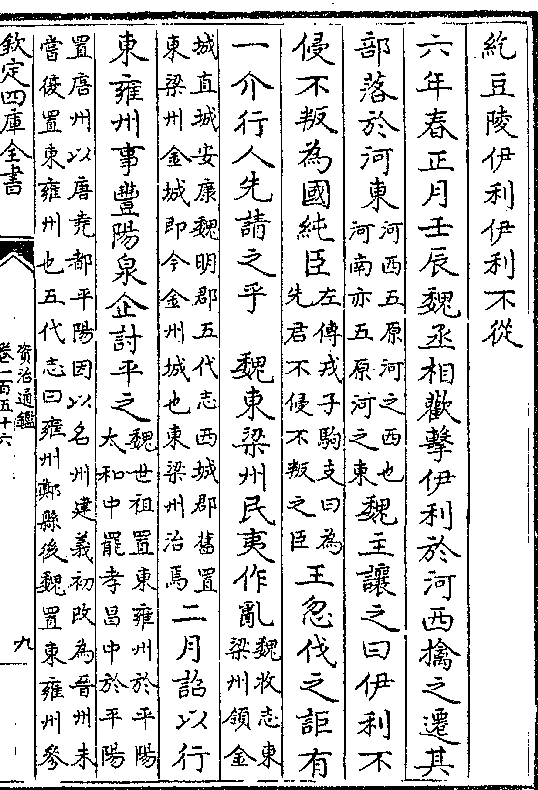 紇豆陵伊利伊利不從
六年春正月壬辰魏丞相歡擊伊利於河西擒之遷其
部落於河東河西五原河之西也
河南亦五原河之東魏主讓之曰伊利不
侵不叛為國純臣左傳戎子駒支曰為
先君不侵不叛之臣王忽伐之詎有
一介行人先請之乎　魏東梁州民夷作亂魏收志東
梁州領金
城直城安康魏明郡五代志西城郡舊置
東梁州金城即今金州城也東梁州治焉二月詔以行
東雍州事豐陽泉企討平之魏世祖置東雍州於平陽
太和中罷孝昌中於平陽
置唐州以唐堯都平陽因以名州建義初改為晉州未
嘗復置東雍州也五代志曰雍州鄭縣後魏置東雍州參
欽定四庫全書
資治通鑑
卷一百五十六
九